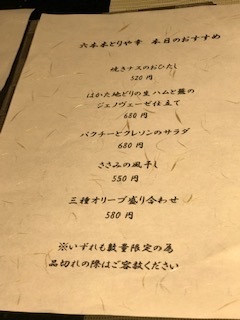 六本木とりや幸 本日のおすすめ
焼きナスのおひたし
520 円
はかた地どりの生ハムと蕪の
ジェノヴェーゼ仕立て
680 円
パクチーとクレソンのサラダ
680 円
ささみの風干し
550 円
三種オリーブ盛り合わせ
580 円
※いずれも数量限定の為
品切れの際はご容赦ください